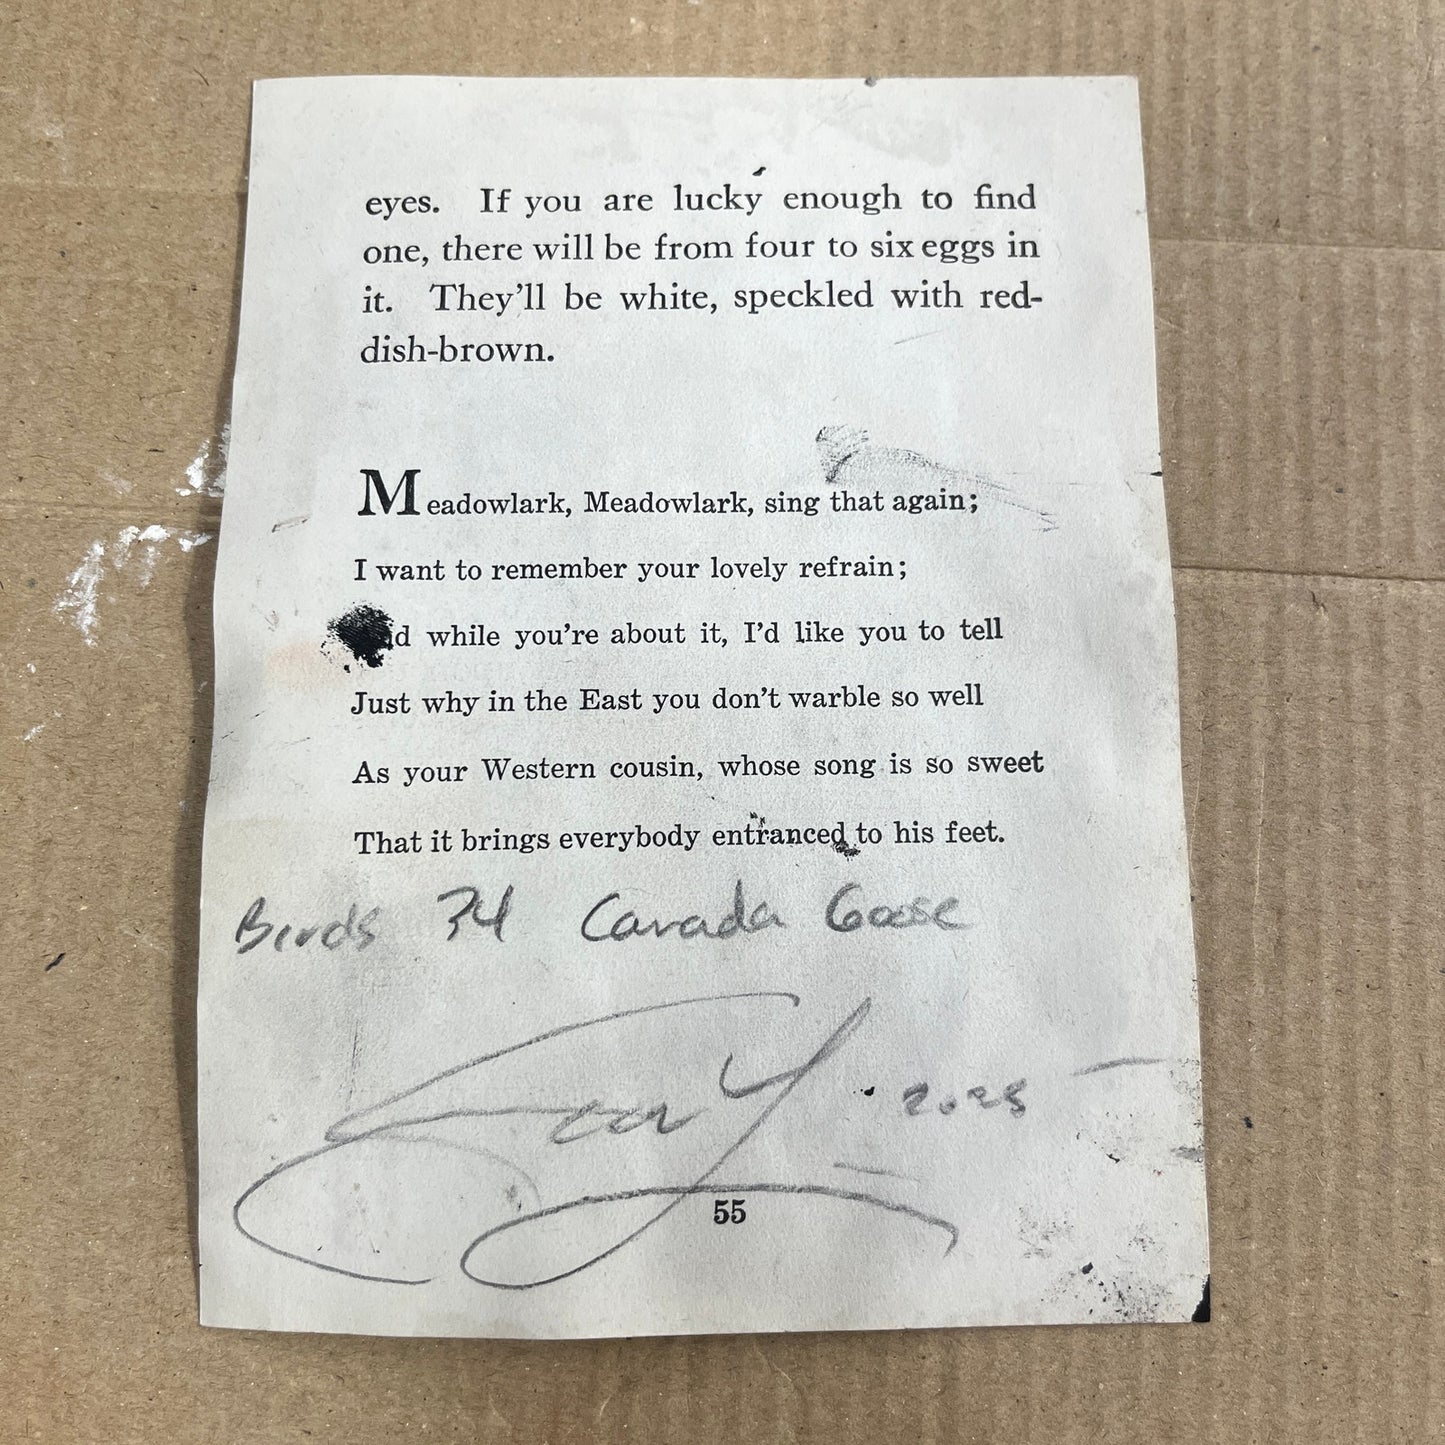 eyes. If you are lucky enough to find
one, there will be from four to six eggs in
it. They'll be white, speckled with red-
dish-brown.
Meadowlark, Meadowlark, sing that again;
I want to remember your lovely refrain;
while you're about it, I'd like you to tell
Just why in the East you don't warble so well
As your Western cousin, whose song is so sweet
That it brings everybody entranced to his feet.
Birds 34 Canada Goose
2025
55